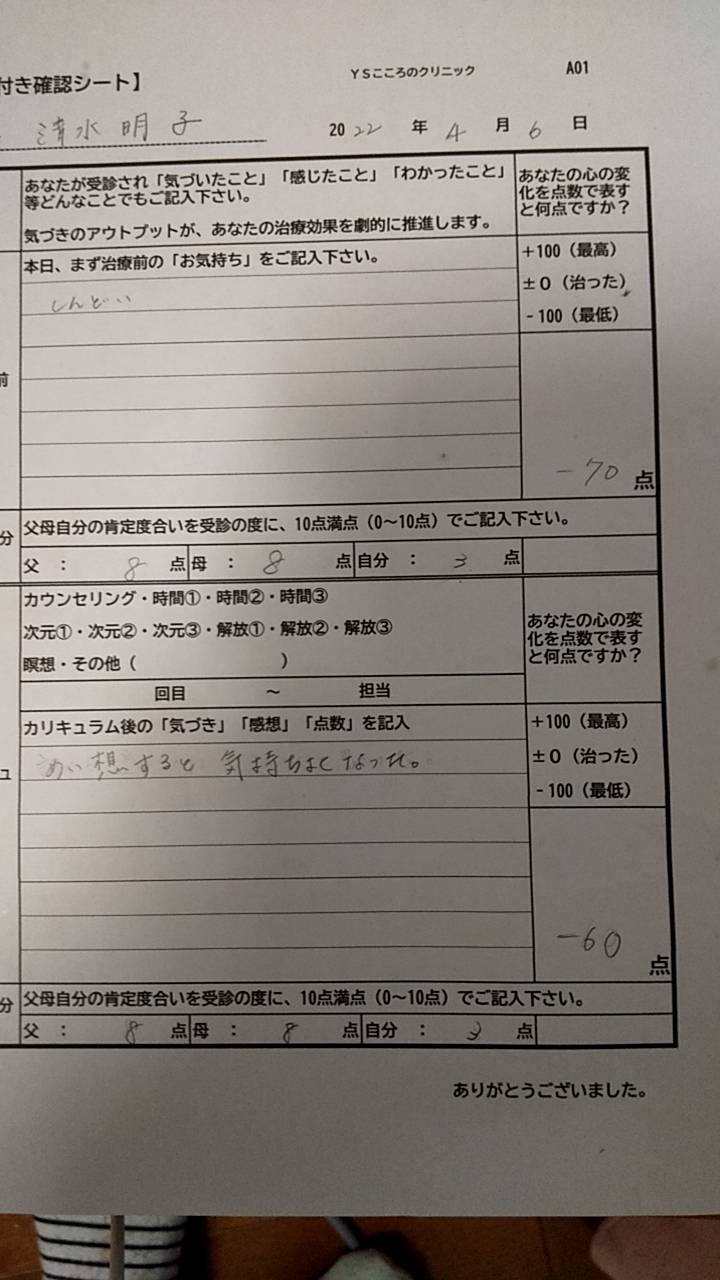 付き確認シート】
YSこころのクリニック
A01
清水明子
2022年4月6日
あなたが受診され「気づいたこと」「感じたこと」「わかったこと」
等どんなことでもご記入下さい。
気づきのアウトプットが、あなたの治療効果を劇的に推進します。
あなたの心の変
化を点数で表す
と何点ですか？
前
本日、まず治療前の「お気持ち」をご記入下さい。
しんどい
+100（最高）
±0（治った）
-100（最低）
-70点
分
父母自分の肯定度合いを受診の度に、10点満点（0～10点）でご記入下さい。
父：8点 母：8点 自分：3点
カウンセリング・時間①・時間②・時間③
次元①・次元②・次元③・解放①・解放②・解放③
瞑想・その他（ ）
回目 ～ 担当
あなたの心の変
化を点数で表す
と何点ですか？
ュ
カリキュラム後の「気づき」「感想」「点数」を記入
めい想すると気持ちよくなった。
+100（最高）
±0（治った）
-100（最低）
-60点
分
父母自分の肯定度合いを受診の度に、10点満点（0～10点）でご記入下さい。
父：8点 母：8点 自分：3点
ありがとうございました。